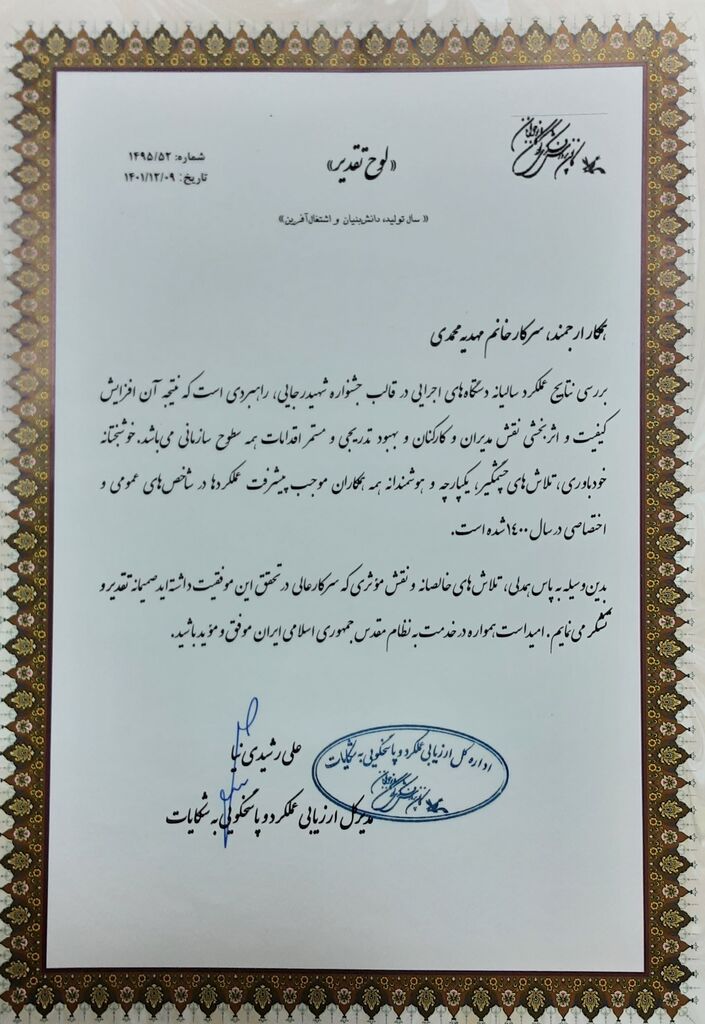 کانون پرورش فکری کودکان و نوجوانان
«لوح تقدیر»
شماره: ۱۴۹۵/۵۲
تاریخ: ۱۴۰۱/۱۲/۰۹
« سال تولید، دانش‌بنیان و اشتغال‌آفرین»
همکار ارجمند، سرکار خانم مهدیه محمدی
بررسی نتایج عملکرد سالیانه دستگاه‌های اجرایی در قالب جشنواره شهید رجایی، راهبردی است که نتیجه آن افزایش
کیفیت و اثربخشی نقش مدیران و کارکنان و بهبود تدریجی و مستمر اقدامات همه سطوح سازمانی می‌باشد. خوشبختانه
خودباوری، تلاش‌های چشمگیر، یکپارچه و هوشمندانه همه همکاران موجب پیشرفت عملکردها در شاخص‌های عمومی و
اختصاصی در سال ۱۴۰۰ شده است.
بدین وسیله به پاس همدلی، تلاش‌های خالصانه و نقش مؤثری که سرکارعالی در تحقق این موفقیت داشته‌اید صمیمانه تقدیر و
تشکر می‌نمایم. امید است همواره در خدمت به نظام مقدس جمهوری اسلامی ایران موفق و مؤید باشید.
علی رشیدی نیا
مدیرکل ارزیابی عملکرد و پاسخگویی به شکایات
اداره کل ارزیابی عملکرد و پاسخگویی به شکایات
کانون پرورش فکری کودکان و نوجوانان